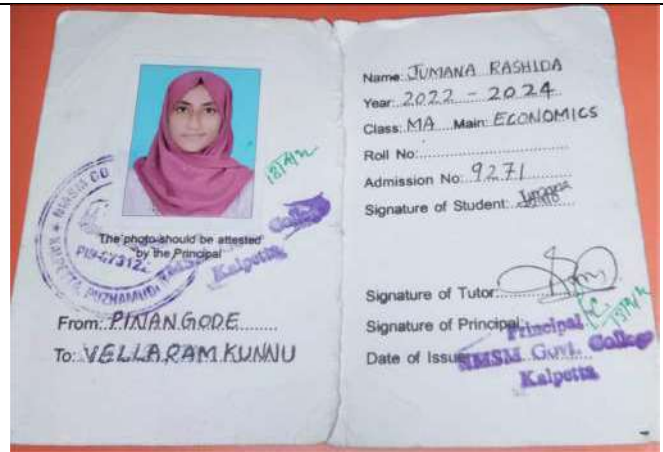 The photo should be attested
by the Principal
NMSM CO
KALPETTA, PUZHAMUDI
PIN-673122
College
Kalpetta
From: PINANGODE
To: VELLARAMKUNNU
Name: JUMANA RASHIDA
Year: 2022 - 2024
Class: MA Main: ECONOMICS
Roll No:
Admission No: 9271
Signature of Student: Jumana
Signature of Tutor:
Signature of Principal:
Principal
Date of Issue
NMSM Govt. College
Kalpetta